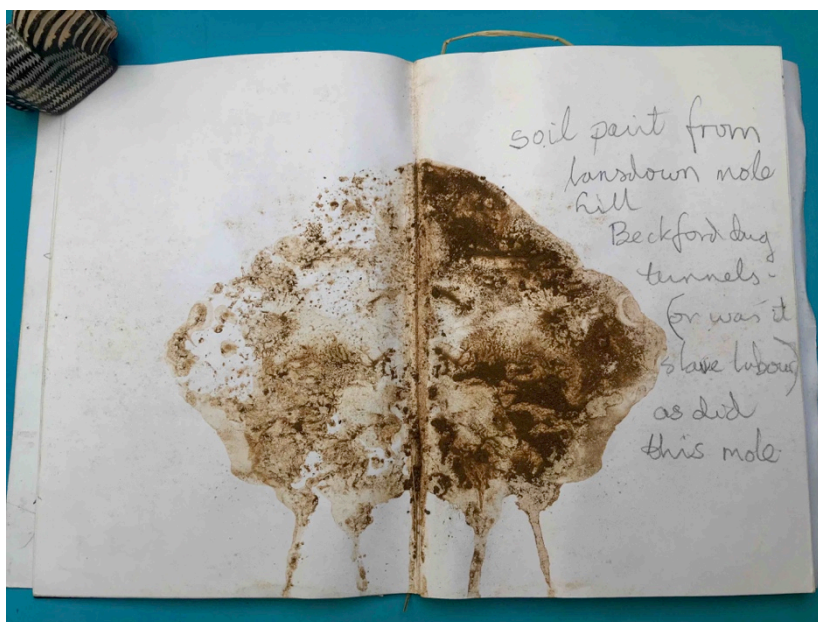 soil paint from
lansdown mole
hill
Beckford dug
tunnels -
(or was it
slave labour)
as did
this mole.